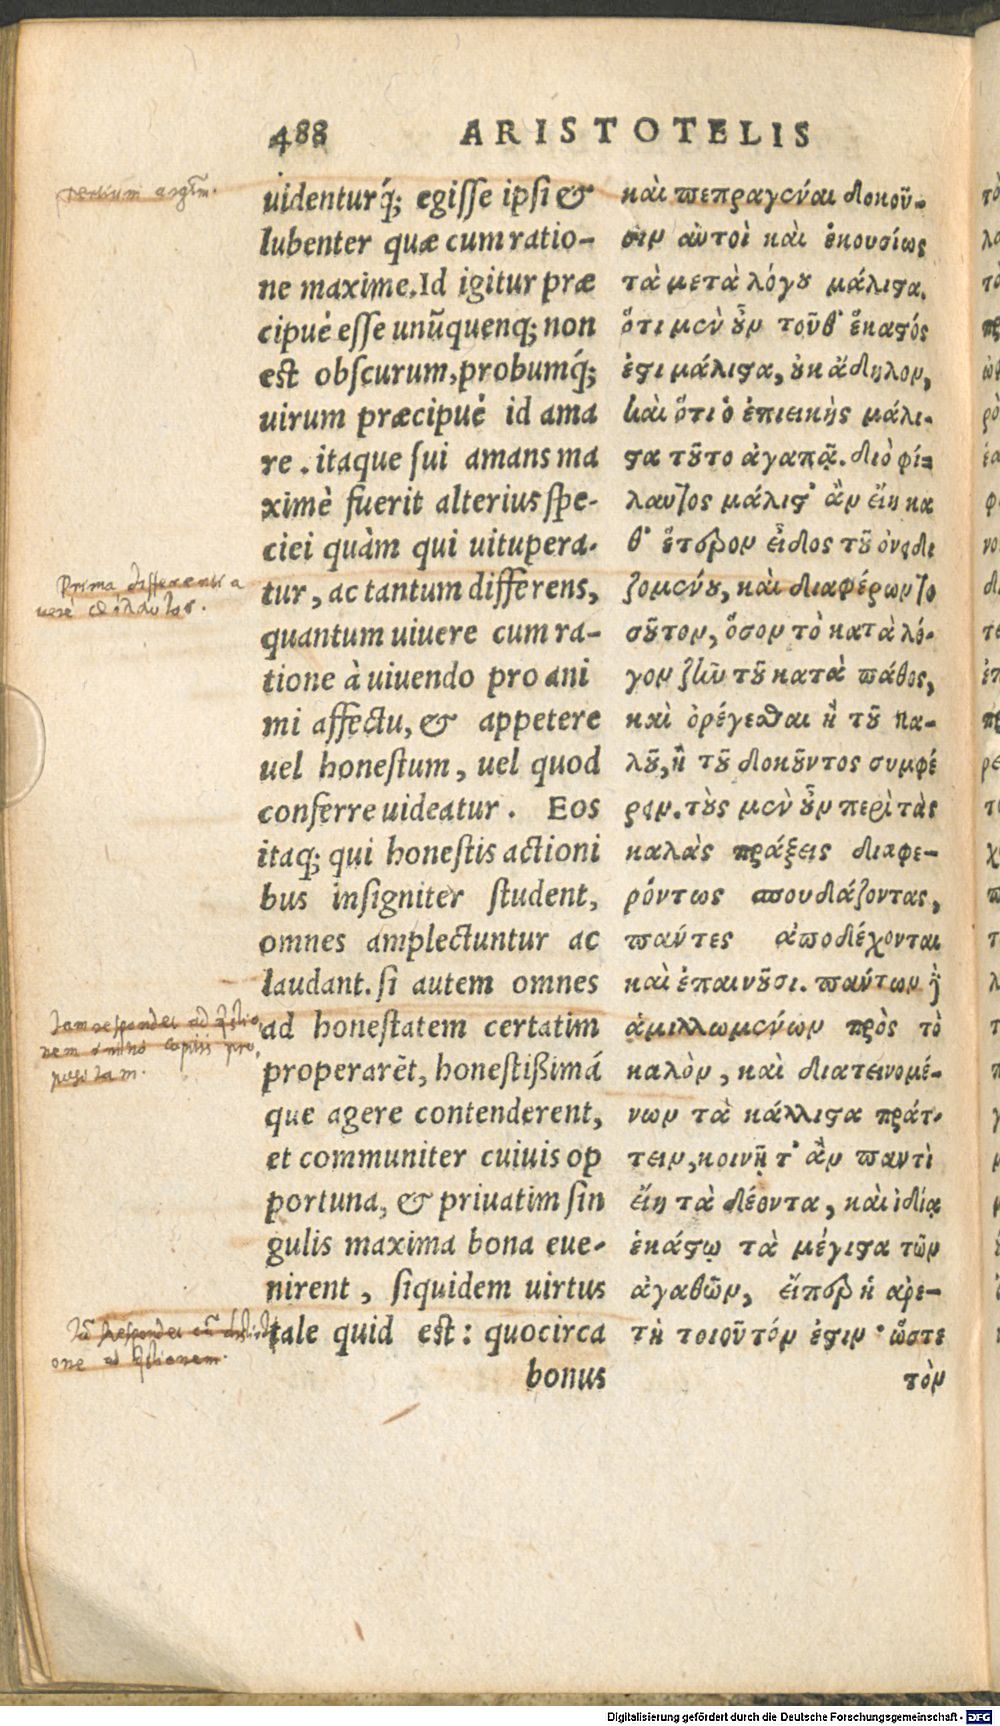 488 ARISTOTELIS
uidenturq́; egisse ipsi &
lubenter quæ cum ratio-
ne maxime. Id igitur præ
cipuè esse unũquenq; non
est obscurum, probumq́;
uirum præcipuè id ama
re. itaque sui amans ma
ximè fuerit alterius spe-
ciei quàm qui uitupera-
tur, ac tantum differens,
quantum uiuere cum ra-
tione à uiuendo pro ani
mi affectu, & appetere
uel honestum, uel quod
conferre uideatur. Eos
itaq; qui honestis actioni
bus insigniter student,
omnes amplectuntur ac
laudant. si autem omnes
ad honestatem certatim
properarẽt, honestißimá
que agere contenderent,
et communiter cuiuis op
portuna, & priuatim sin
gulis maxima bona eue-
nirent, siquidem uirtus
tale quid est: quocirca
bonus
καὶ πεπραγέναι δοκοῦ-
σιν αὐτοὶ καὶ ἑκουσίως
τὰ μετὰ λόγου μάλιστα.
ὅτι μὲν οὖν τοῦθ' ἕκαστός
ἐστι μάλιστα, οὐκ ἄδηλον,
καὶ ὅτι ὁ ἐπιεικὴς μάλι-
στα τοῦτο ἀγαπᾷ. διὸ φί-
λαυτος μάλιστ' ἂν εἴη κα
θ' ἕτερον εἶδος τοῦ ὀνειδι
ζομένου, καὶ διαφέρων το
σοῦτον, ὅσον τὸ κατὰ λό-
γον ζῆν τοῦ κατὰ πάθος,
καὶ ὀρέγεσθαι ἢ τοῦ κα-
λοῦ, ἢ τοῦ δοκοῦντος συμφέ
ρειν. τοὺς μὲν οὖν περὶ τὰς
καλὰς πράξεις διαφε-
ρόντως σπουδάζοντας,
πάντες ἀποδέχονται
καὶ ἐπαινοῦσι. πάντων δὲ
ἁμιλλωμένων πρὸς τὸ
καλὸν, καὶ διατεινομέ-
νων τὰ κάλλιστα πράτ-
τειν, κοινῇ τ' ἂν παντὶ
εἴη τὰ δέοντα, καὶ ἰδίᾳ
ἑκάστῳ τὰ μέγιστα τῶν
ἀγαθῶν, εἴπερ ἡ ἀρε-
τὴ τοιοῦτόν ἐστιν· ὥστε
τὸν
tertium argtm.
Prima differentia
uere φίλαυτος.
Iam respondet ad
nem capitis pro,
positam.
respondet
one ad
Digitalisierung gefördert durch die Deutsche Forschungsgemeinschaft - DFG